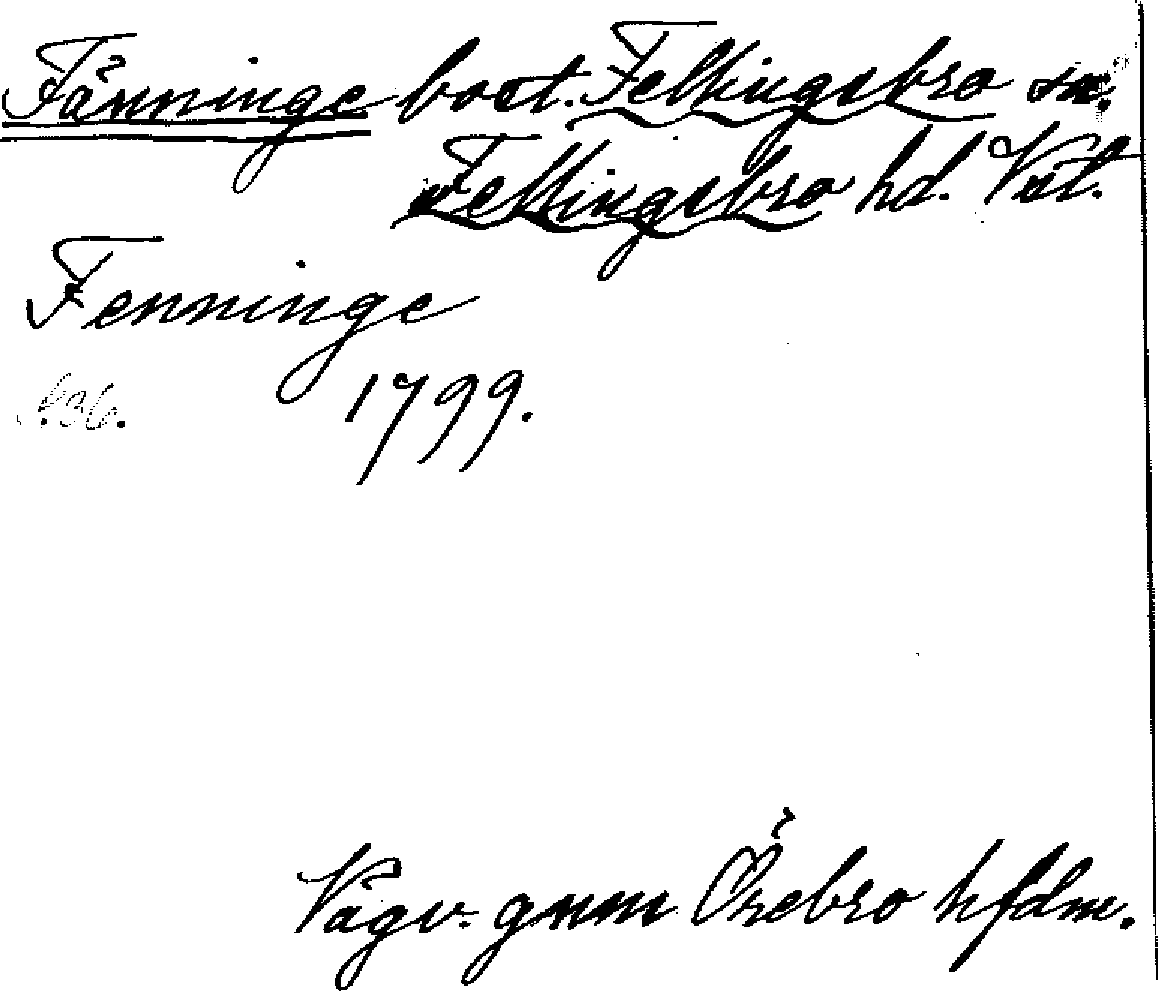 Fänninge bost. Fellingsbro sn.
Fellingsbro hd. Vstl.
Fenninge
1799.
Vägv. gnm Örebro hfdm.